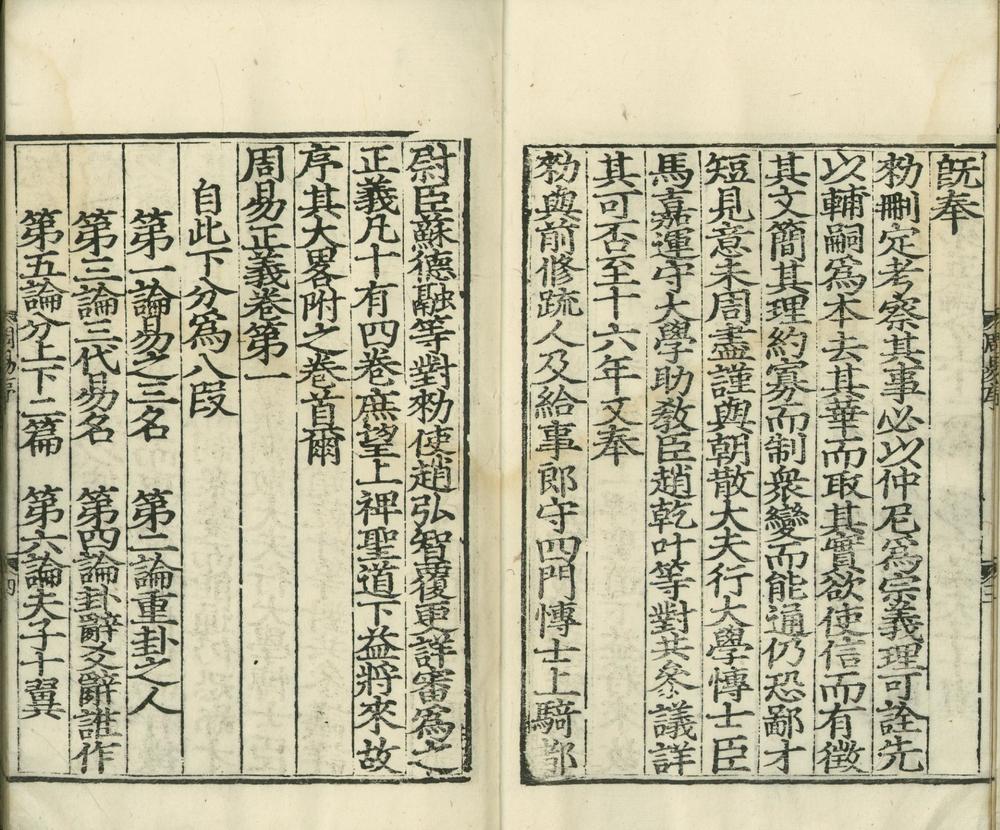 旣奉
勑刪定考察其事必以仲尼爲宗義理可詮先
以輔嗣爲本去其華而取其實欲使信而有徵
其文簡其理約寡而制衆變而能通仍恐鄙才
短見意未周盡謹與朝散大夫行大學愽士臣
馬嘉運守大學助敎臣趙乾叶等對共叅議詳
其可否至十六年又奉
勑與前修疏人及給事郎守四門愽士上騎都
尉臣蘇德融等對勑使趙弘智覆更詳審爲之
正義凡十有四卷庶望上裨聖道下益將來故
序其大畧附之卷首爾
周易正義卷第一
自此下分爲八段
第一論易之三名　第二論重卦之人
第三論三代易名　第四論卦辭爻辭誰作
第五論分上下二篇　第六論夫子十翼